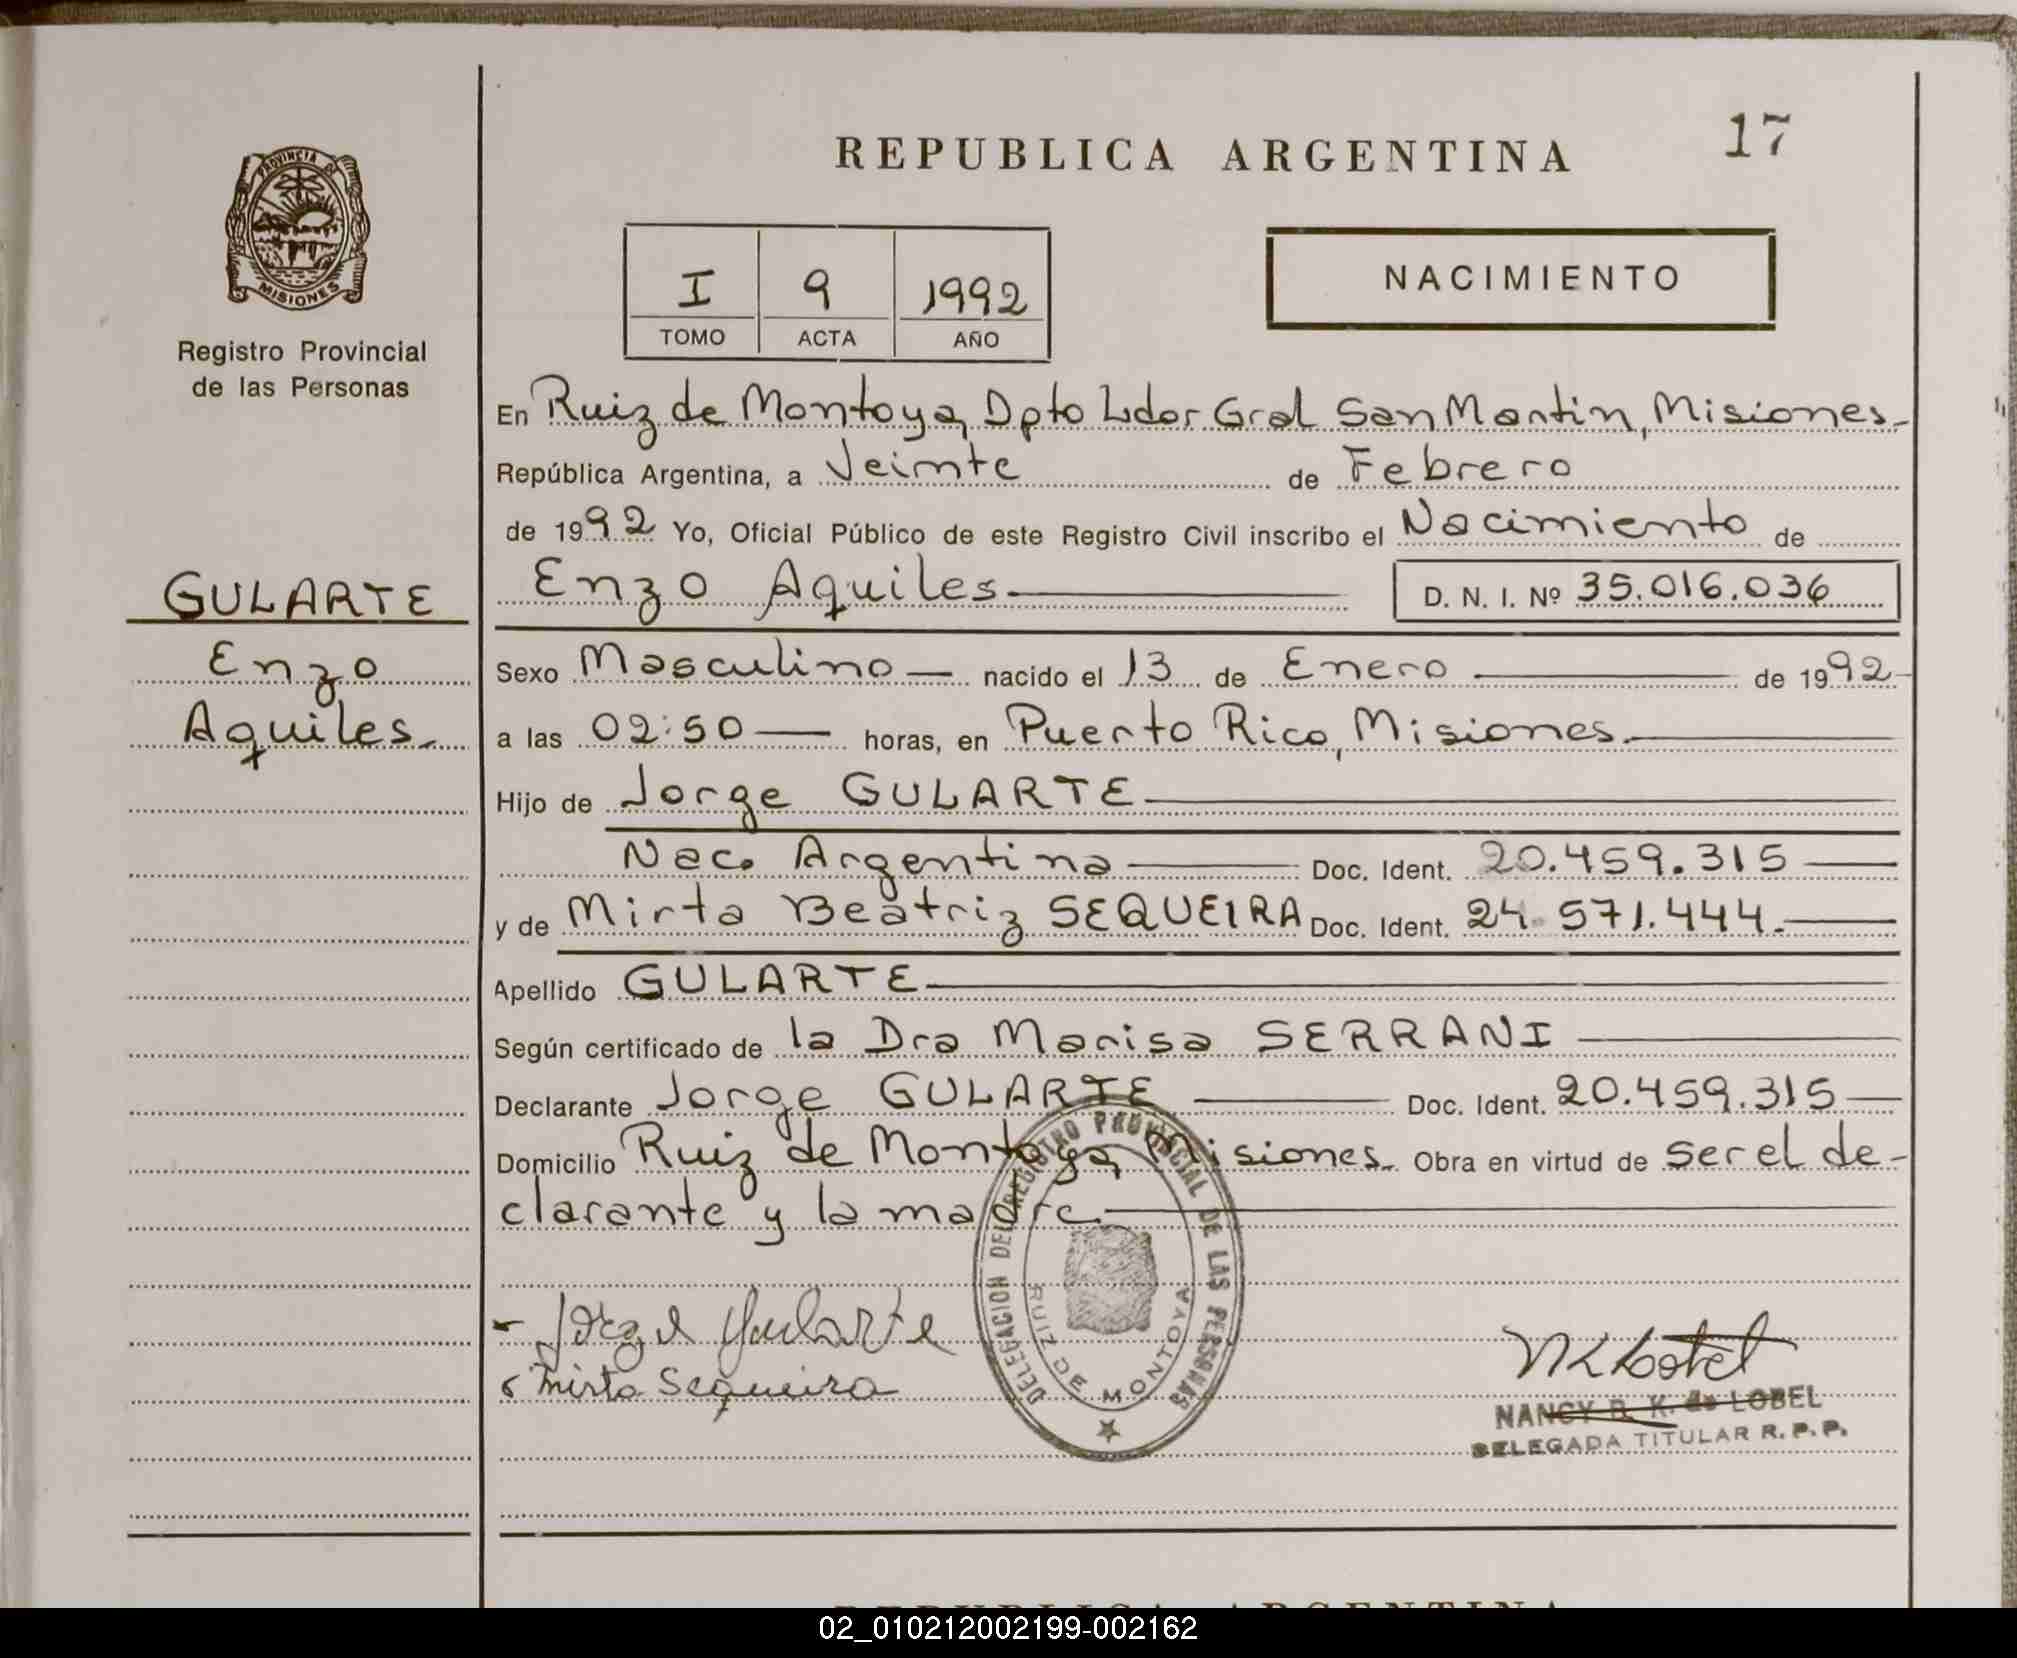 REPUBLICA ARGENTINA
17
PROVINCIA DE
MISIONES
Registro Provincial
de las Personas
I 9 1992
TOMO ACTA AÑO
NACIMIENTO
En Ruiz de Montoya, Dpto Ldor Gral San Martin, Misiones.-
República Argentina, a Veinte de Febrero
de 1992 Yo, Oficial Público de este Registro Civil inscribo el Nacimiento de
Enzo Aquiles
D. N. I. Nº 35.016.036
GULARTE
Enzo
Aquiles.-
Sexo Masculino — nacido el 13 de Enero — de 1992-
a las 02:50 — horas, en Puerto Rico, Misiones.—
Hijo de Jorge GULARTE —
Nac. Argentina — Doc. Ident. 20.459.315 —
y de Mirta Beatriz SEQUEIRA Doc. Ident. 24.571.444.—
Apellido GULARTE —
Según certificado de la Dra Marisa SERRANI —
Declarante Jorge GULARTE — Doc. Ident. 20.459.315 —
Domicilio Ruiz de Montoya, Misiones. Obra en virtud de ser el de-
clarante y la madre.—
DELEGACION DEL REGISTRO PROVINCIAL DE LAS PERSONAS
RUIZ DE MONTOYA
Jorge Gularte
Mirta Sequeira
NKLobel
NANCY B. K. de LOBEL
DELEGADA TITULAR R. P. P.
REPUBLICA ARGENTINA
02_010212002199-002162